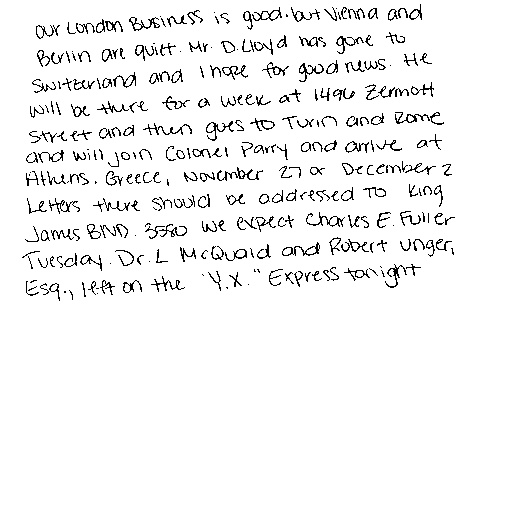 our London Business is good. but Vienna and
Berlin are quiet. Mr. D. Lloyd has gone to
Switzerland and I hope for good news. He
will be there for a week at 1496 Zermott
street and then goes to Turin and Rome
and will join Colonel Parry and arrive at
Athens. Greece, November 27 or December 2
Letters there should be addressed TO King
James BlVD. 3580 We expect Charles E. Fuller
Tuesday. Dr. L McQuaid and Robert Unger,
Esq., left on the "Y.X." Express tonight